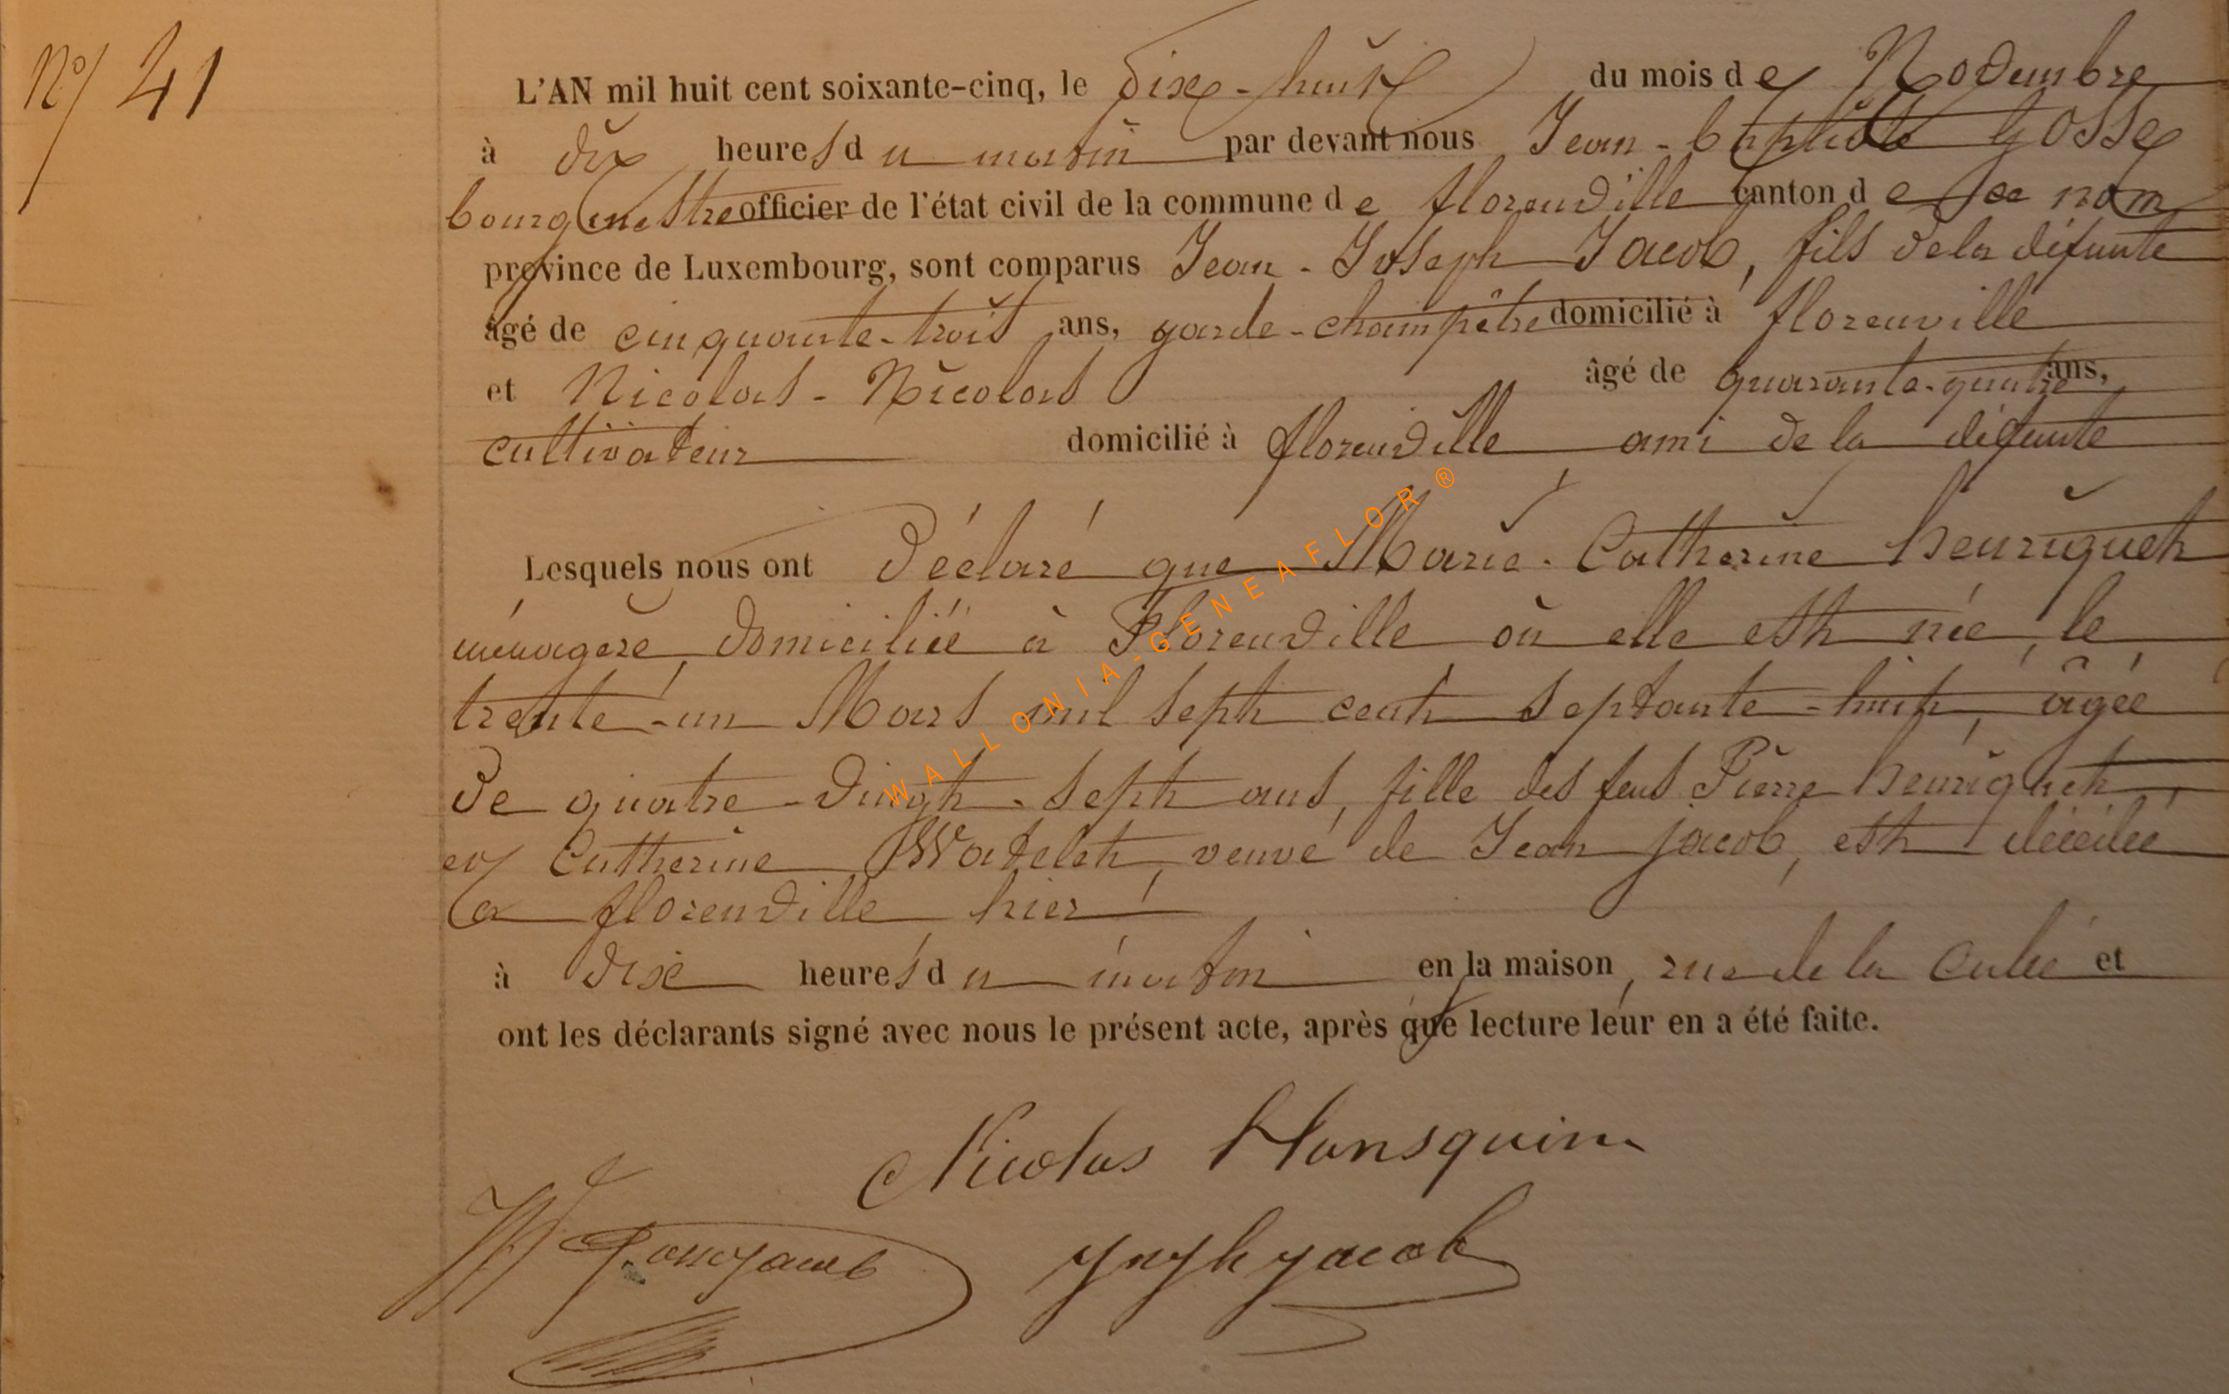 N° 41
L'AN mil huit cent soixante-cinq, le dix-huit du mois de Novembre
à dix heures du matin par devant nous Jean-baptiste Gosse
bourgmestre officier de l'état civil de la commune de florenville canton de ce nom
province de Luxembourg, sont comparus Jean-Joseph Jacob, fils de la défunte
âgé de cinquante-trois ans, garde-champêtre domicilié à florenville
et Nicolas-Nicolas âgé de quarante-quatre ans,
cultivateur domicilié à florenville ami de la défunte
Lesquels nous ont déclaré que Marie-Catherine henriquet
ménagère, domiciliée à Florenville où elle est née, le
trente-un Mars mil sept cent septante-huit, âgée
de quatre-vingt-sept ans, fille des feus Pierre henriquet,
et Catherine Watelet, veuve de Jean Jacob, est décédée
à florenville hier
à dix heures du matin en la maison, rue de la Culée et
ont les déclarants signé avec nous le présent acte, après que lecture leur en a été faite.
Nicolas Hansquin
Jph Jacob
WALLONIA-GENEAFLOR®